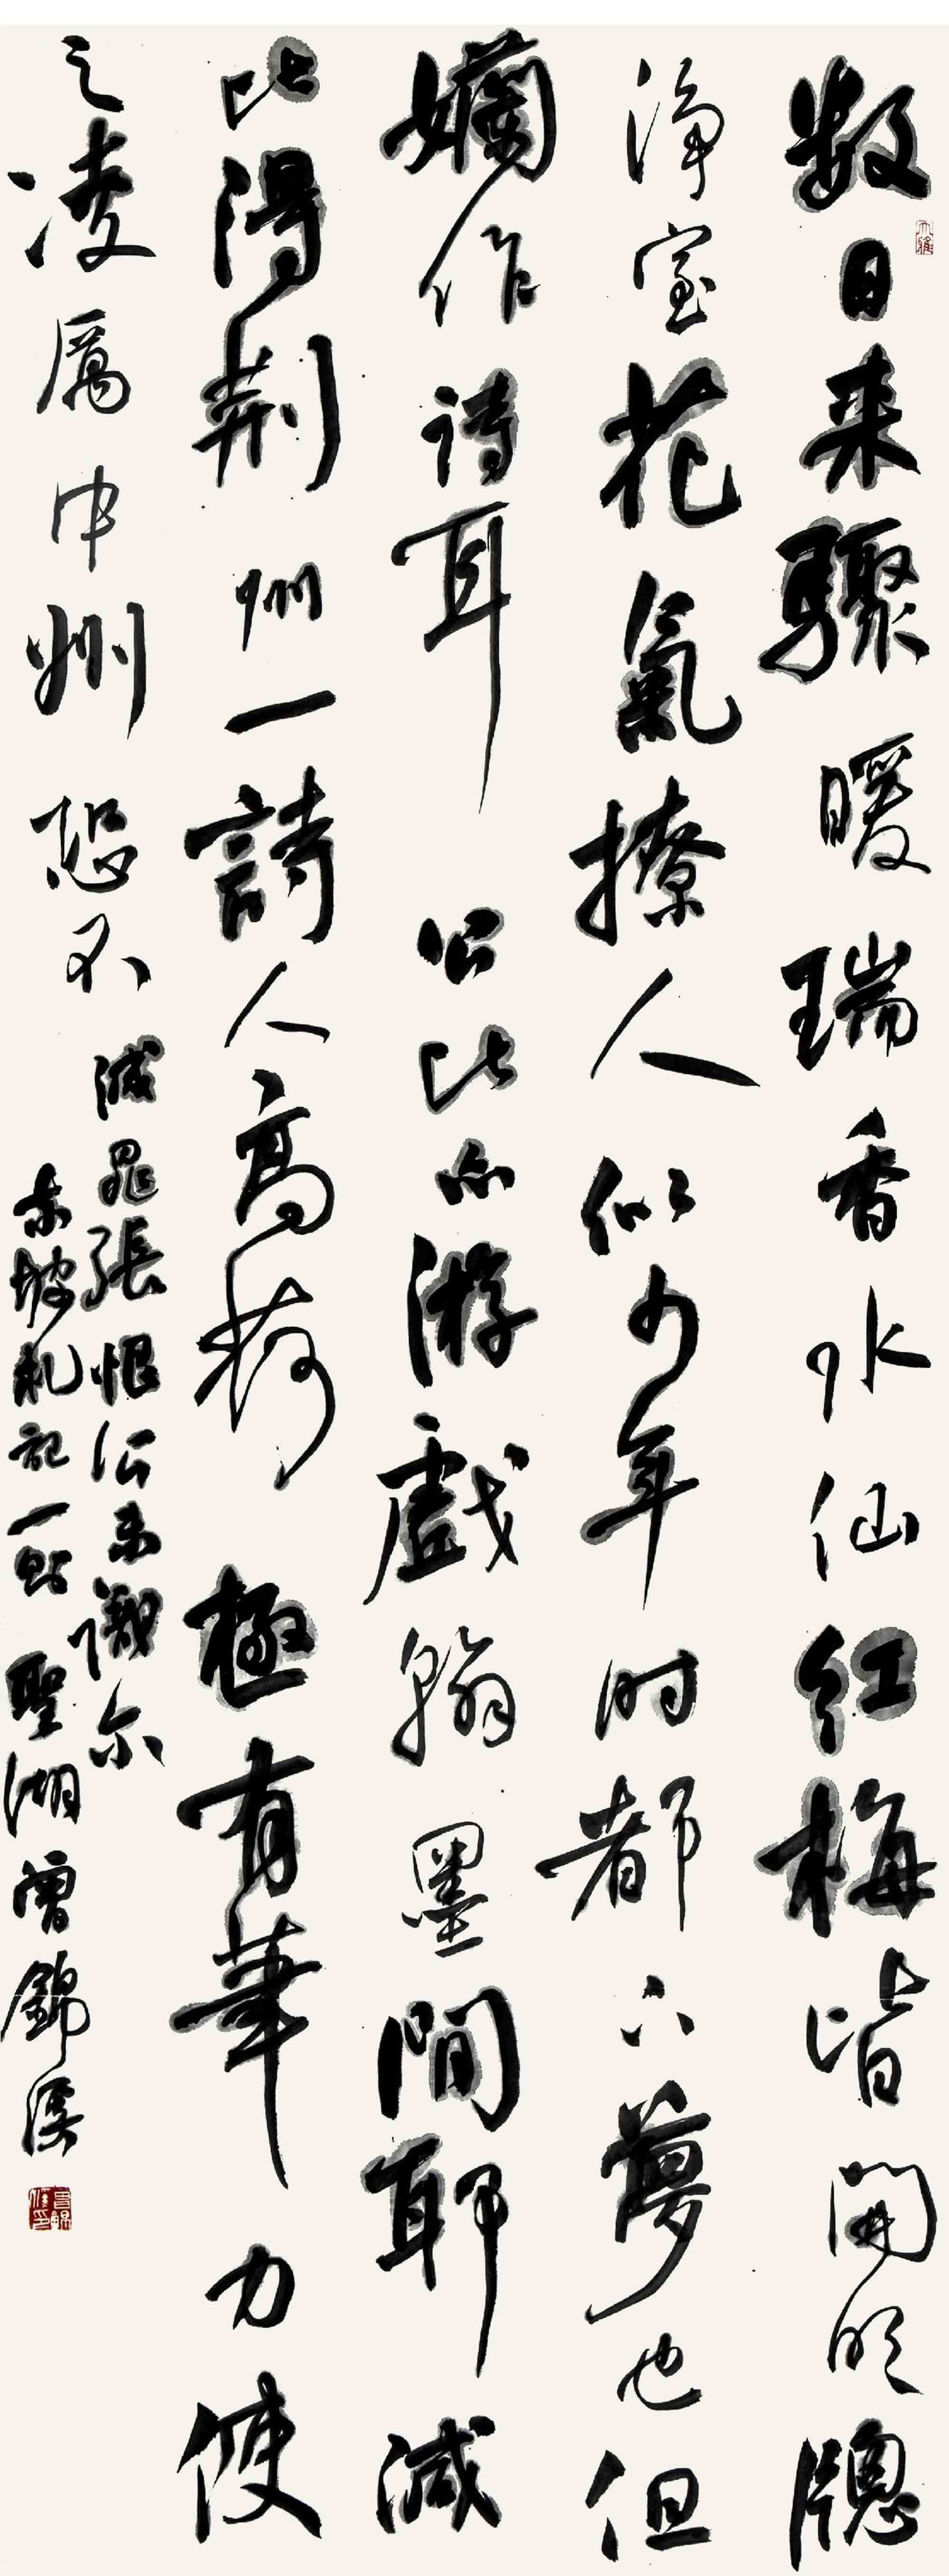 数日来驟暖瑞香水仙红梅皆開明牕
淨室花氣撩人似少年时都下夢也但
嬾作诗耳 公比亦游戲翰墨間耶減
比得荆州一詩人高荷 極有筆力使
之凌厲中州恐不
減晁張恨公未識尔
东坡札記一贴 聖湖曾錦溪
大雅